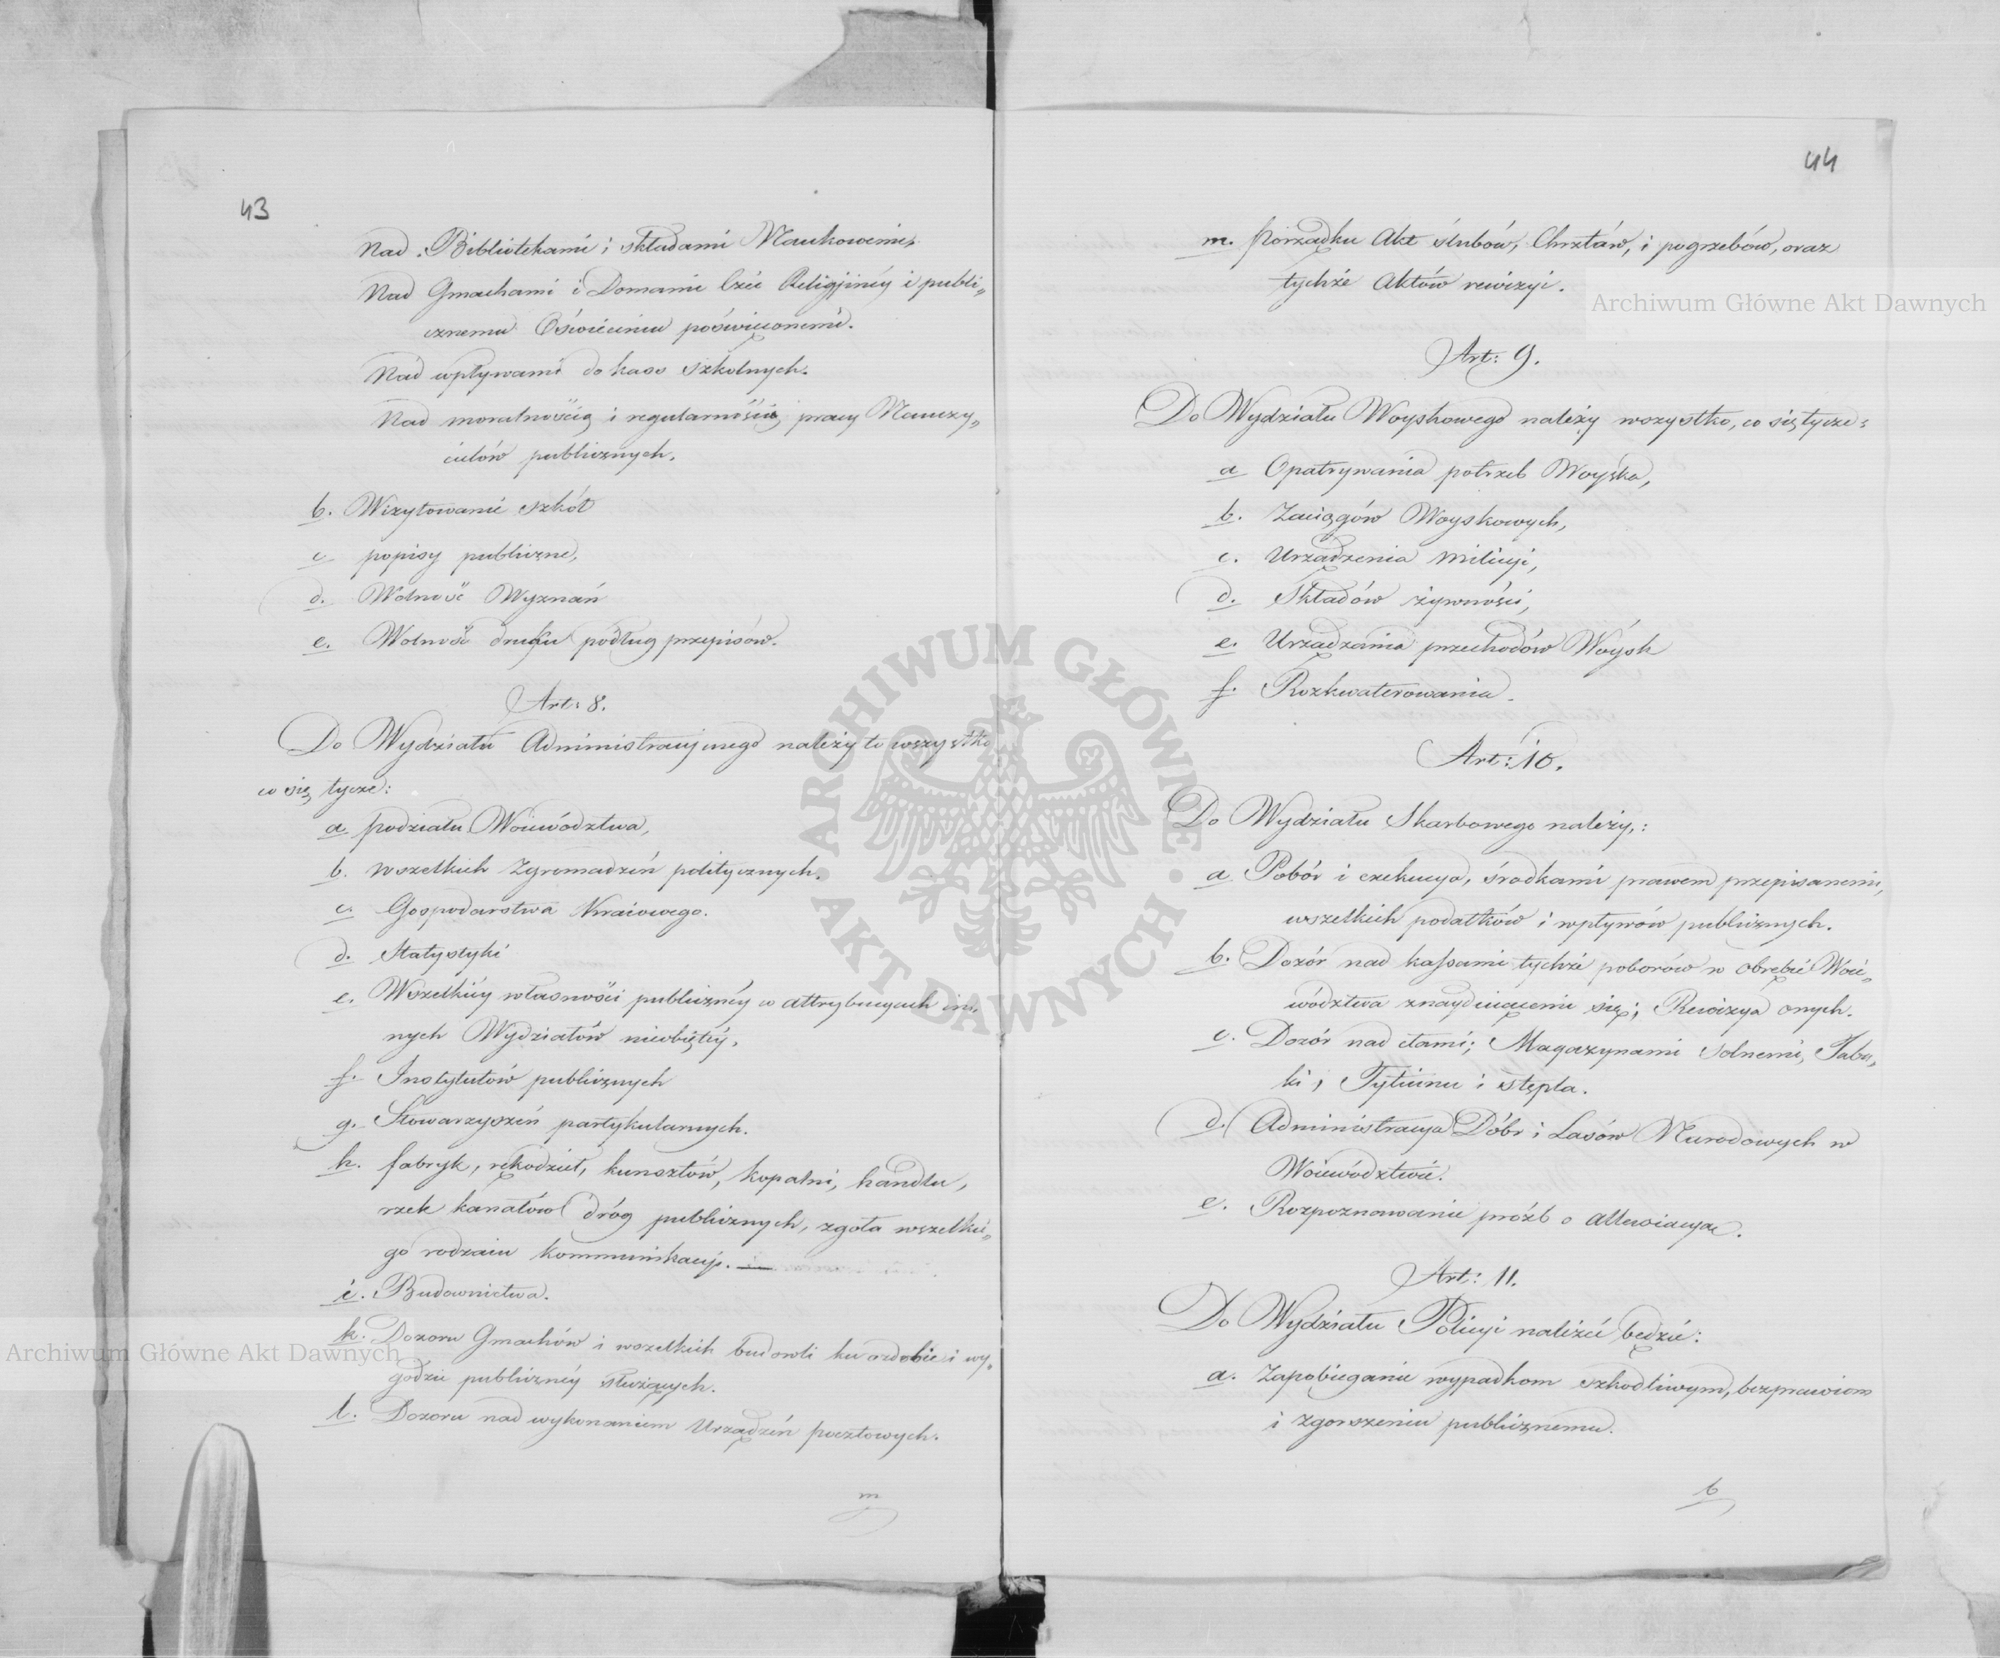 43
Nad Bibliotekami i składami Naukowemi,
Nad Gmachami i Domami Czci Religijnéy i publi„
cznemu Oświeceniu poświęconemi.
Nad wpływami do kass szkolnych.
Nad moralnością i regularnością pracy Nauczy„
cielów publicznych.
b. Wizytowanie szkół
c popisy publiczne,
d. Wolność Wyznań
e. Wolność druku podług przepisów.
Art: 8.
Do Wydziału Administracyjnego należy to wszystko
co się tycze:
a podziału Woiewództwa,
b. wszelkich Zgromadzeń politycznych.
c. Gospodarstwa Kraiowego.
d. Statystyki
e. Wszelkiéy własności publicznéy w attrybucyach in„
nych Wydziałów nieobiętéy.
f. Instytutów publicznych
g. Stowarzyszeń partykularnych.
h. fabryk, rękodzieł, kunsztów, kopalni, handlu,
rzek kanałów dróg publicznych, zgoła wszelkie„
go rodzaiu kommunikacyi. —
i. Budownictwa.
k. Dozoru Gmachów i wszelkich budowli ku ozdobie i wy„
godzie publicznéy służących.
l. Dozoru nad wykonaniem Urządzeń pocztowych.
m
44
m. porządku Akt ślubów, Chrztów, i pogrzebów, oraz
tychże Aktów rewizyi.
Art: 9.
Do Wydziału Woyskowego należy wszystko, co się tycze:
a Opatrywania potrzeb Woyska,
b. Zaciągów Woyskowych,
c. Urządzenia Milicyi,
d. Składów żywności,
e. Urządzania przechodów Woysk
f. Rozkwaterowania.
Art: 10.
Do Wydziału Skarbowego należy:
a Pobór i exekucya, środkami prawem przepisanemi,
wszelkich podatków i wpływów publicznych.
b. Dozór nad kassami tychże poborów w obrębie Woie„
wództwa znayduiącemi się; Rewizya onych.
c. Dozór nad cłami; Magazynami Solnemi, Taba„
ki, Tytuniu i stępla.
d. Administracya Dóbr i Lasów Narodowych w
Woiewództwie.
e. Rozpoznawanie próźb o allewiacyą.
Art: 11.
Do Wydziału Policyi należeć będzie:
a. Zapobieganie wypadkom szkodliwym, bezprawiom
i zgorszeniu publicznemu.
b
Archiwum Główne Akt Dawnych
ARCHIWUM GŁÓWNE
AKT DAWNYCH
Archiwum Główne Akt Dawnych